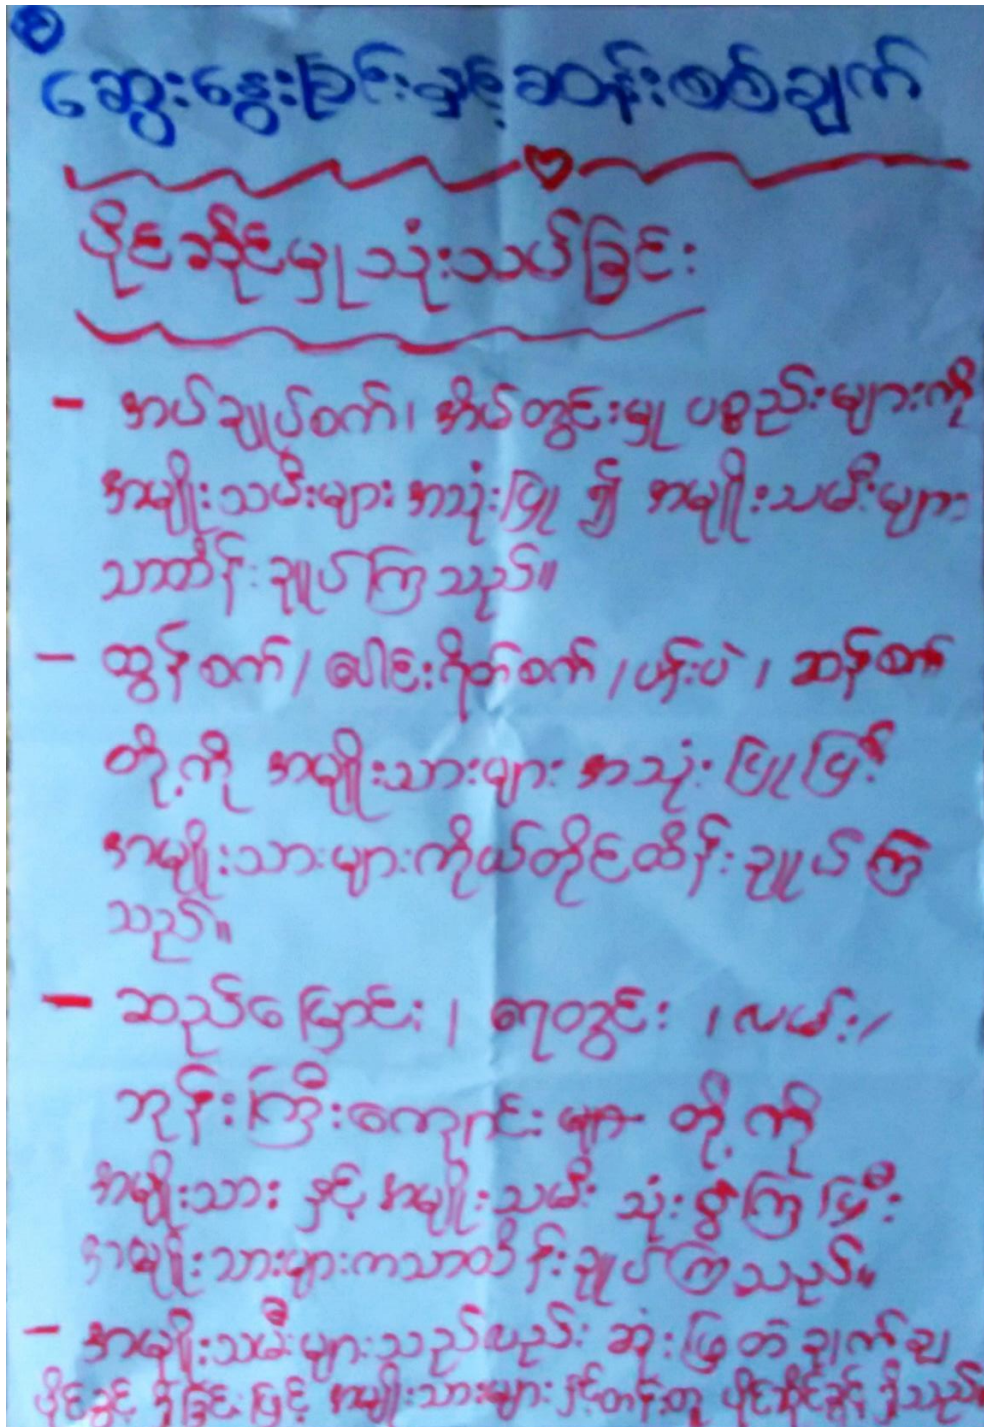 ဆွေးနွေးခြင်းနှင့်ဆန်းစစ်ချက်
ပိုင်ဆိုင်မှု သုံးသပ်ခြင်း
- အပ်ချုပ်စက်၊ အိမ်တွင်းမှု ပစ္စည်းများကို
အမျိုးသမီးများ အသုံးပြု ၍ အမျိုးသမီးများ
သာထိန်းချုပ်ကြသည်။
- ထွန်စက်/ပေါင်းရိတ်စက်/ပန်းပဲ၊ ဆန်စက်
တို့ကို အမျိုးသားများ အသုံးပြုပြီး
အမျိုးသားများကိုယ်တိုင်ထိန်းချုပ်ကြ
သည်။
- ဆည်မြောင်း၊ ရေတွင်း ၊လမ်း/
ဘုန်းကြီးကျောင်းများ တို့ကို
အမျိုးသား နှင့် အမျိုးသမီး သုံးစွဲကြပြီး
အမျိုးသားများကသာထိန်းချုပ်ကြသည်။
- အမျိုးသမီးများသည်လည်း ဆုံးဖြတ်ချက်ချ
ပိုင်ခွင့် ရှိခြင်းဖြင့် အမျိုးသားများ နှင့်တန်းတူ ပိုင်ဆိုင်ခွင့် ရှိသည်။